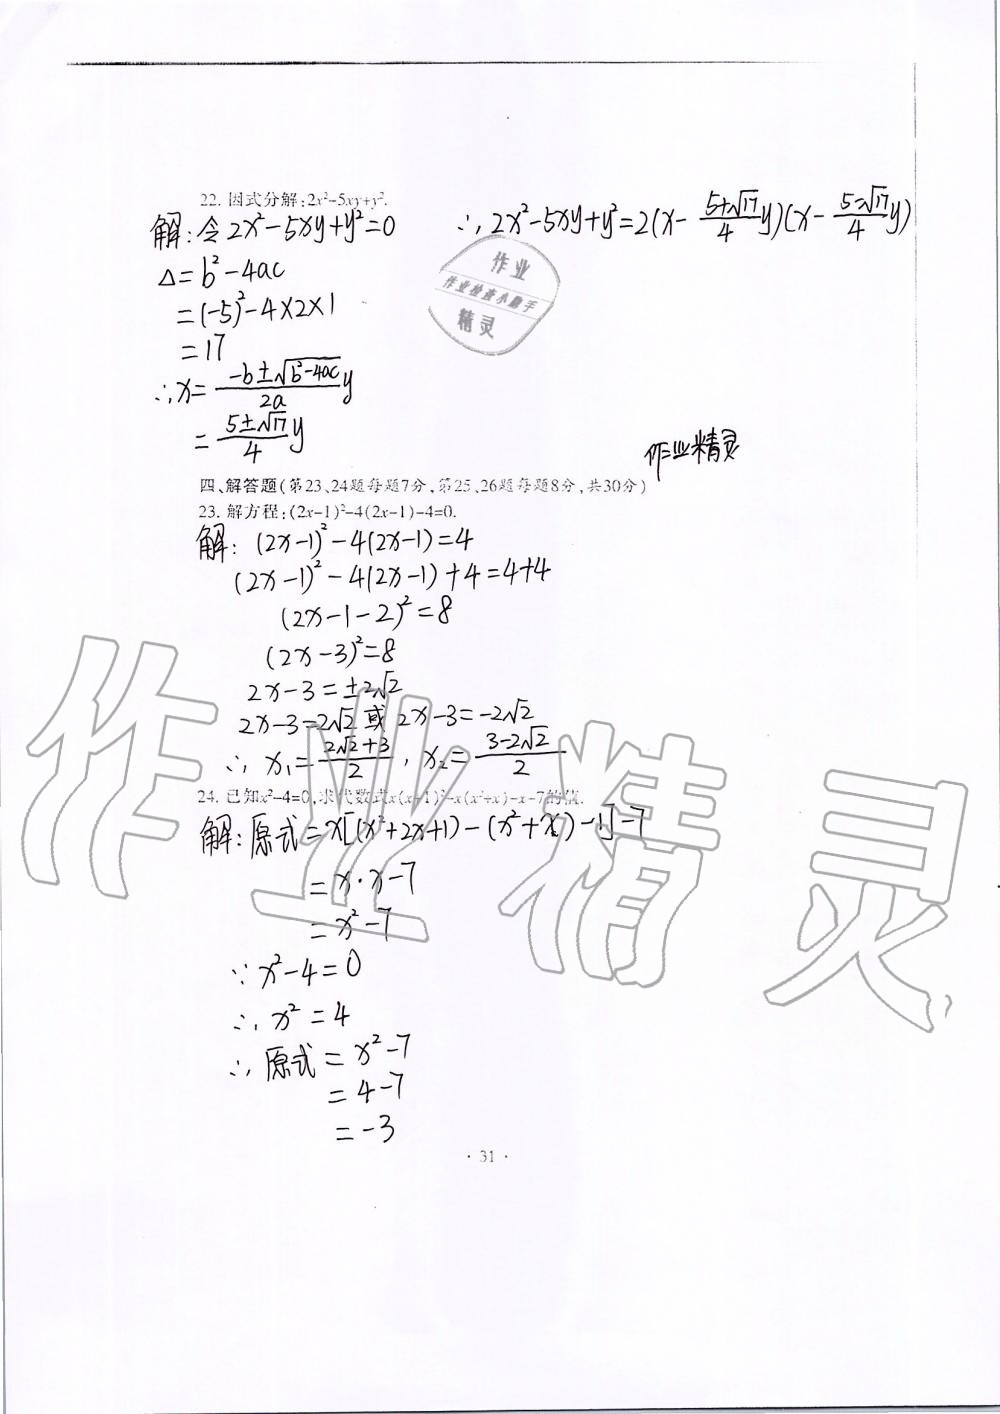 22. 因式分解:2x²-5xy+y².
解:令2x²-5xy+y²=0
△=b²-4ac
=(-5)²-4×2×1
=17
∴x=(-b±√(b²-4ac))/(2a) y
=(5±√17)/4 y
∴2x²-5xy+y²=2(x-(5+√17)/4 y)(x-(5-√17)/4 y)
作业
作业检查小助手
精灵
作业精灵
四、解答题(第23、24题每题7分,第25、26题每题8分,共30分)
23. 解方程:(2x-1)²-4(2x-1)-4=0.
解:(2x-1)²-4(2x-1)=4
(2x-1)²-4(2x-1)+4=4+4
(2x-1-2)²=8
(2x-3)²=8
2x-3=±2√2
2x-3=2√2 或 2x-3=-2√2
∴x₁=(2√2+3)/2,x₂=(3-2√2)/2
24. 已知x²-4=0,求代数式x(x+1)²-x(x²+x)-x-7的值.
解:原式=x[(x²+2x+1)-(x²+x)-1]-7
=x·x-7
=x²-7
∵x²-4=0
∴x²=4
∴原式=x²-7
=4-7
=-3
·31·
作业精灵